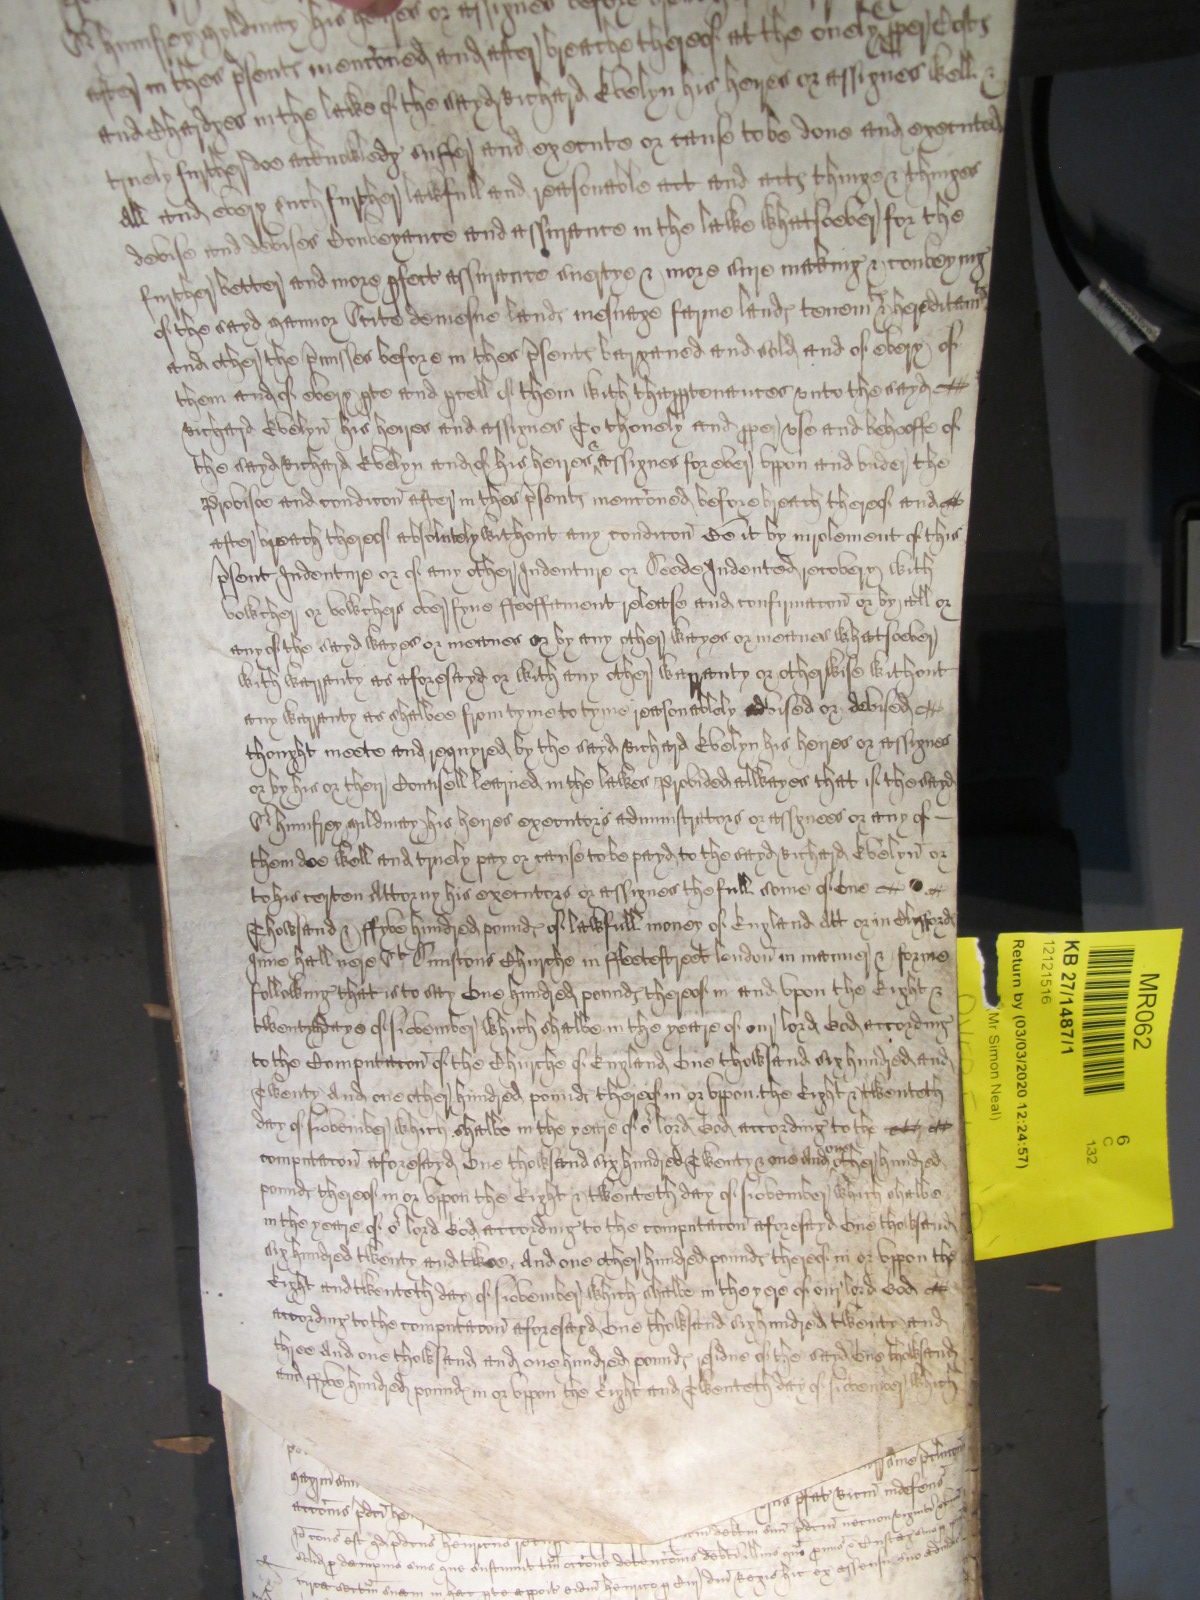 Sr humfrey myldmay his heires or assignes before
after in thes p'sents mentioned and after breache thereof at the onely pper Costs
and Chardges in the lawe of the sayd Richard Evelyn his heires or assignes well &
truely further doe acknowledg suffer and execute or cause to be done and executed
all and every such further lawfull and reasonable act and acts thinge & thinges
devise and devises Conveyance and assurance in the lawe whatsoever for the
further better and more pfect assurance suertye & more sure making & conveying
of the sayd mannor Scite demesne lands mesuage farme lands tenemts & hereditamts
and other the pmisses before in thes psents bargayned and sold and of every of
them and of every pte and pcell of them with thapptenances unto the sayd
Richard Evelyn his heires and assignes To thonely and pper use and behooffe of
the sayd Richard Evelyn and of his heires & assignes for ever uppon and under the
Provisoe and condicon after in thes psents mencioned before breach thereof and
after breach thereof absolutely without any condicon Be it by inrolement of this
psent Indenture or of any other Indenture or Deede Indented recovery with
vowcher or vowchers over fyne ffeoffament release and confirmacon or by all or
any of the sayd wayes or meanes or by any other wayes or meanes whatsoever
with warranty as aforesayd or with any other warranty or otherwise without
any warranty as shalbee from tyme to tyme reasonablely advised or devised
thought meete and requyred by the sayd Richard Evelyn his heires or assignes
or by his or their Councell learned in the lawes Provided allwayes that if the sayd
Sr humfrey mildmay his heires executors administrators or assignees or any of
them doe well and truely pay or cause to be payd to the sayd Richard Evelyn or
to his certen Attorny his executors or assignes the full some of One
Thowsand & ffyve hundred pounds of lawfull money of England Att or in Clifford
Inne hall nere St Dunstons Churche in ffleetestreet london in manner & forme
following that is to say One hundred pounds thereof in and uppon the Eight &
twenty daye of November which shalbe in the yeare of our lord God according
to the Computacon of the Churche of England One thowsand six hundred and
Twenty And one other hundred pounds thereof in or uppon the Eight & twenteth
day of November which shalbe in the yeare of or lord God according to the
computacon aforesayd One thowsand six hundred Twenty & one And one other hundred
pounds thereof in or uppon the Eight & twenteth day of November which shalbe
in the yeare of or lord God according to the computacon aforesayd One thowsand
six hundred twenty and twoe, And one other hundred pounds thereof in or uppon the
Eight and twenteth day of November which shalbe in the yere of our lord God
according to the computacon aforesayd One thowsand six hundred twenty and
three And one thowsand and one hundred pounds residue of the sayd One thowsand
and ffyve hundred pounds in or uppon the Eight and Twenteth day of November which
MR062
KB 27/1487/1
12121516
Return by (03/03/2020 12:24:57)
Mr Simon Neal)
6
C
132